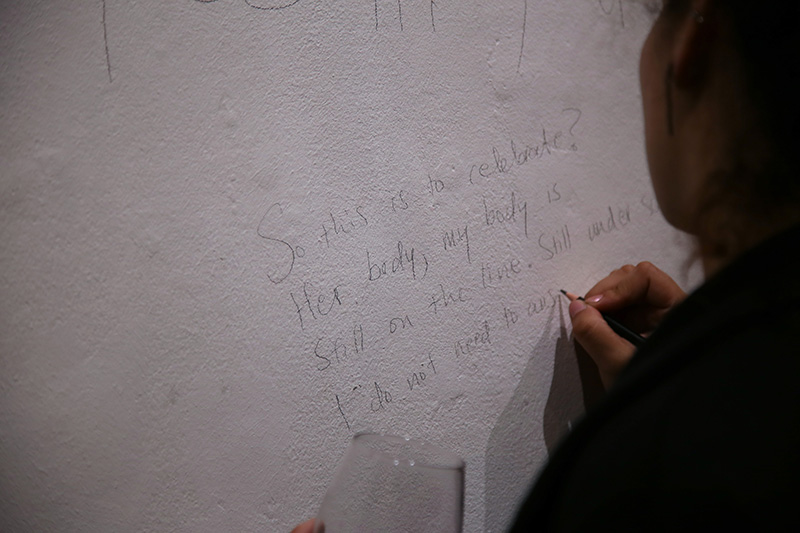 So this is to celebrate?
Her body, my body is
Still on the line. Still under
I do not need to